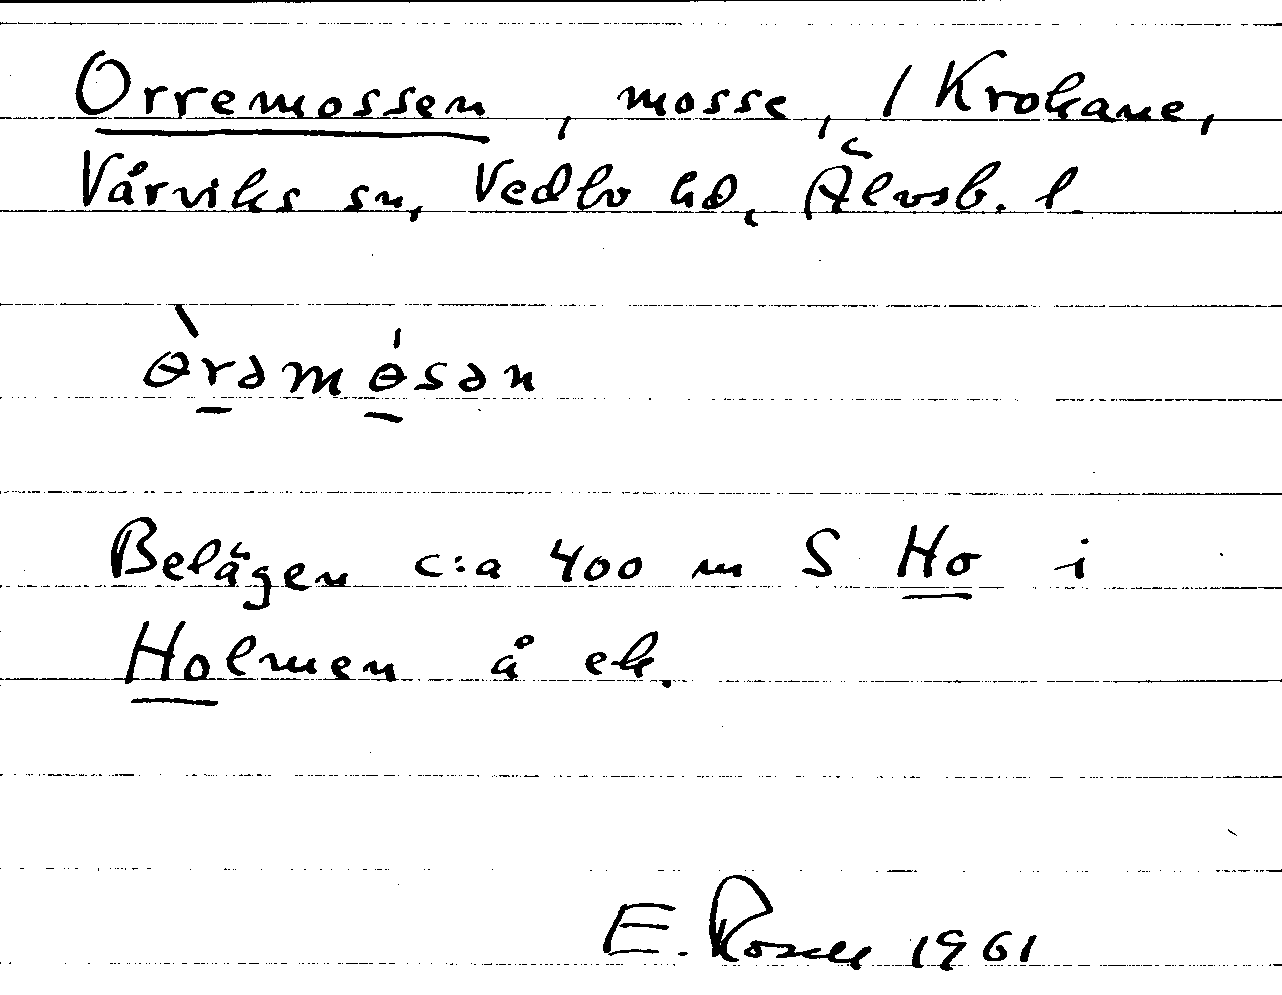 Orremossen, mosse, / Krokane,
Vårviks sn, Vedbo hd, Älvsb. l.
ɵ̀rəmɵ́sən
Belägen c:a 400 m S Ho i
Holmen å ek.
E. Rosell 1961